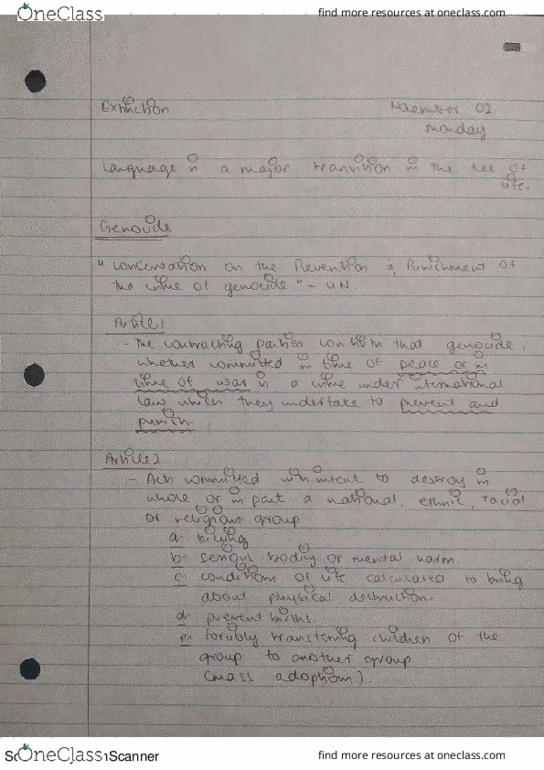 OneClass find more resources at oneclass.com
Extinction November 02
Monday
Language is a major transition in the tree of
life.
Genocide
"conservation on the Prevention & Punishment of
the crime of genocide" - UN.
Article 1
- The contracting parties confirm that genocide,
whether committed in time of peace or in
time of war is a crime under international
law which they undertake to prevent and
punish.
Article 2
- Acts committed with intent to destroy in
whole or in part a national, ethnic, racial
or religious group
a: killing
b: serious bodily or mental harm.
c: conditions of life calculated to bring
about physical destruction.
d: prevent births.
e: forcibly transferring children of the
group to another group
(mass adoption).
OneClass Scanner find more resources at oneclass.com